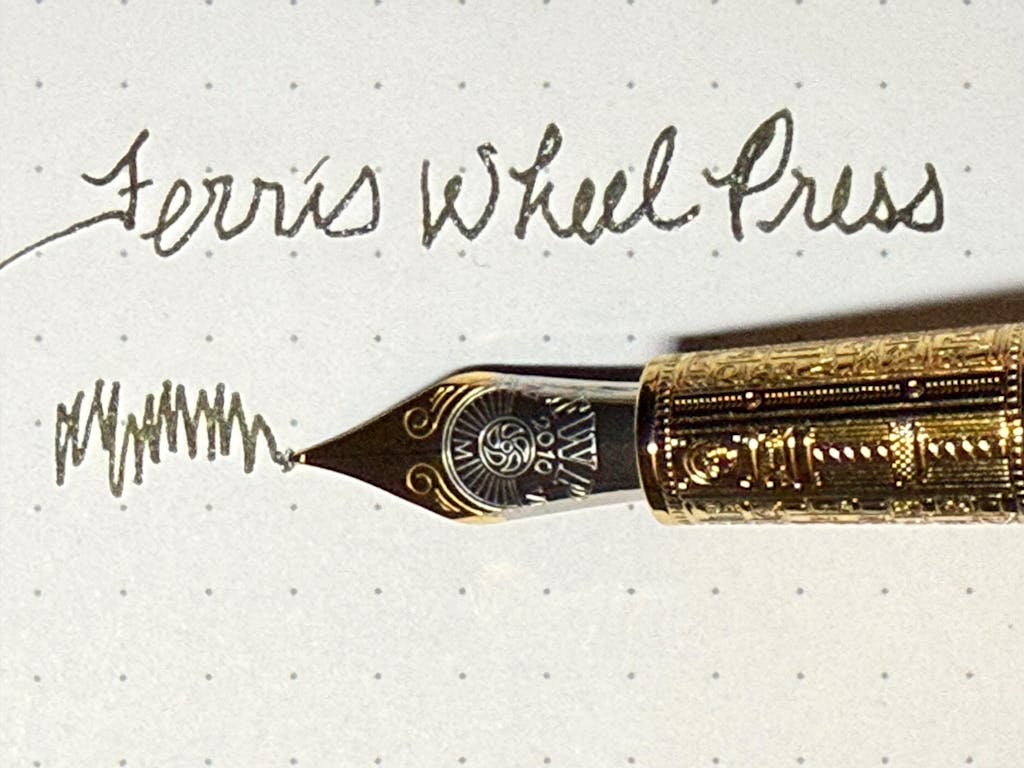 Ferris Wheel Press
M
2010